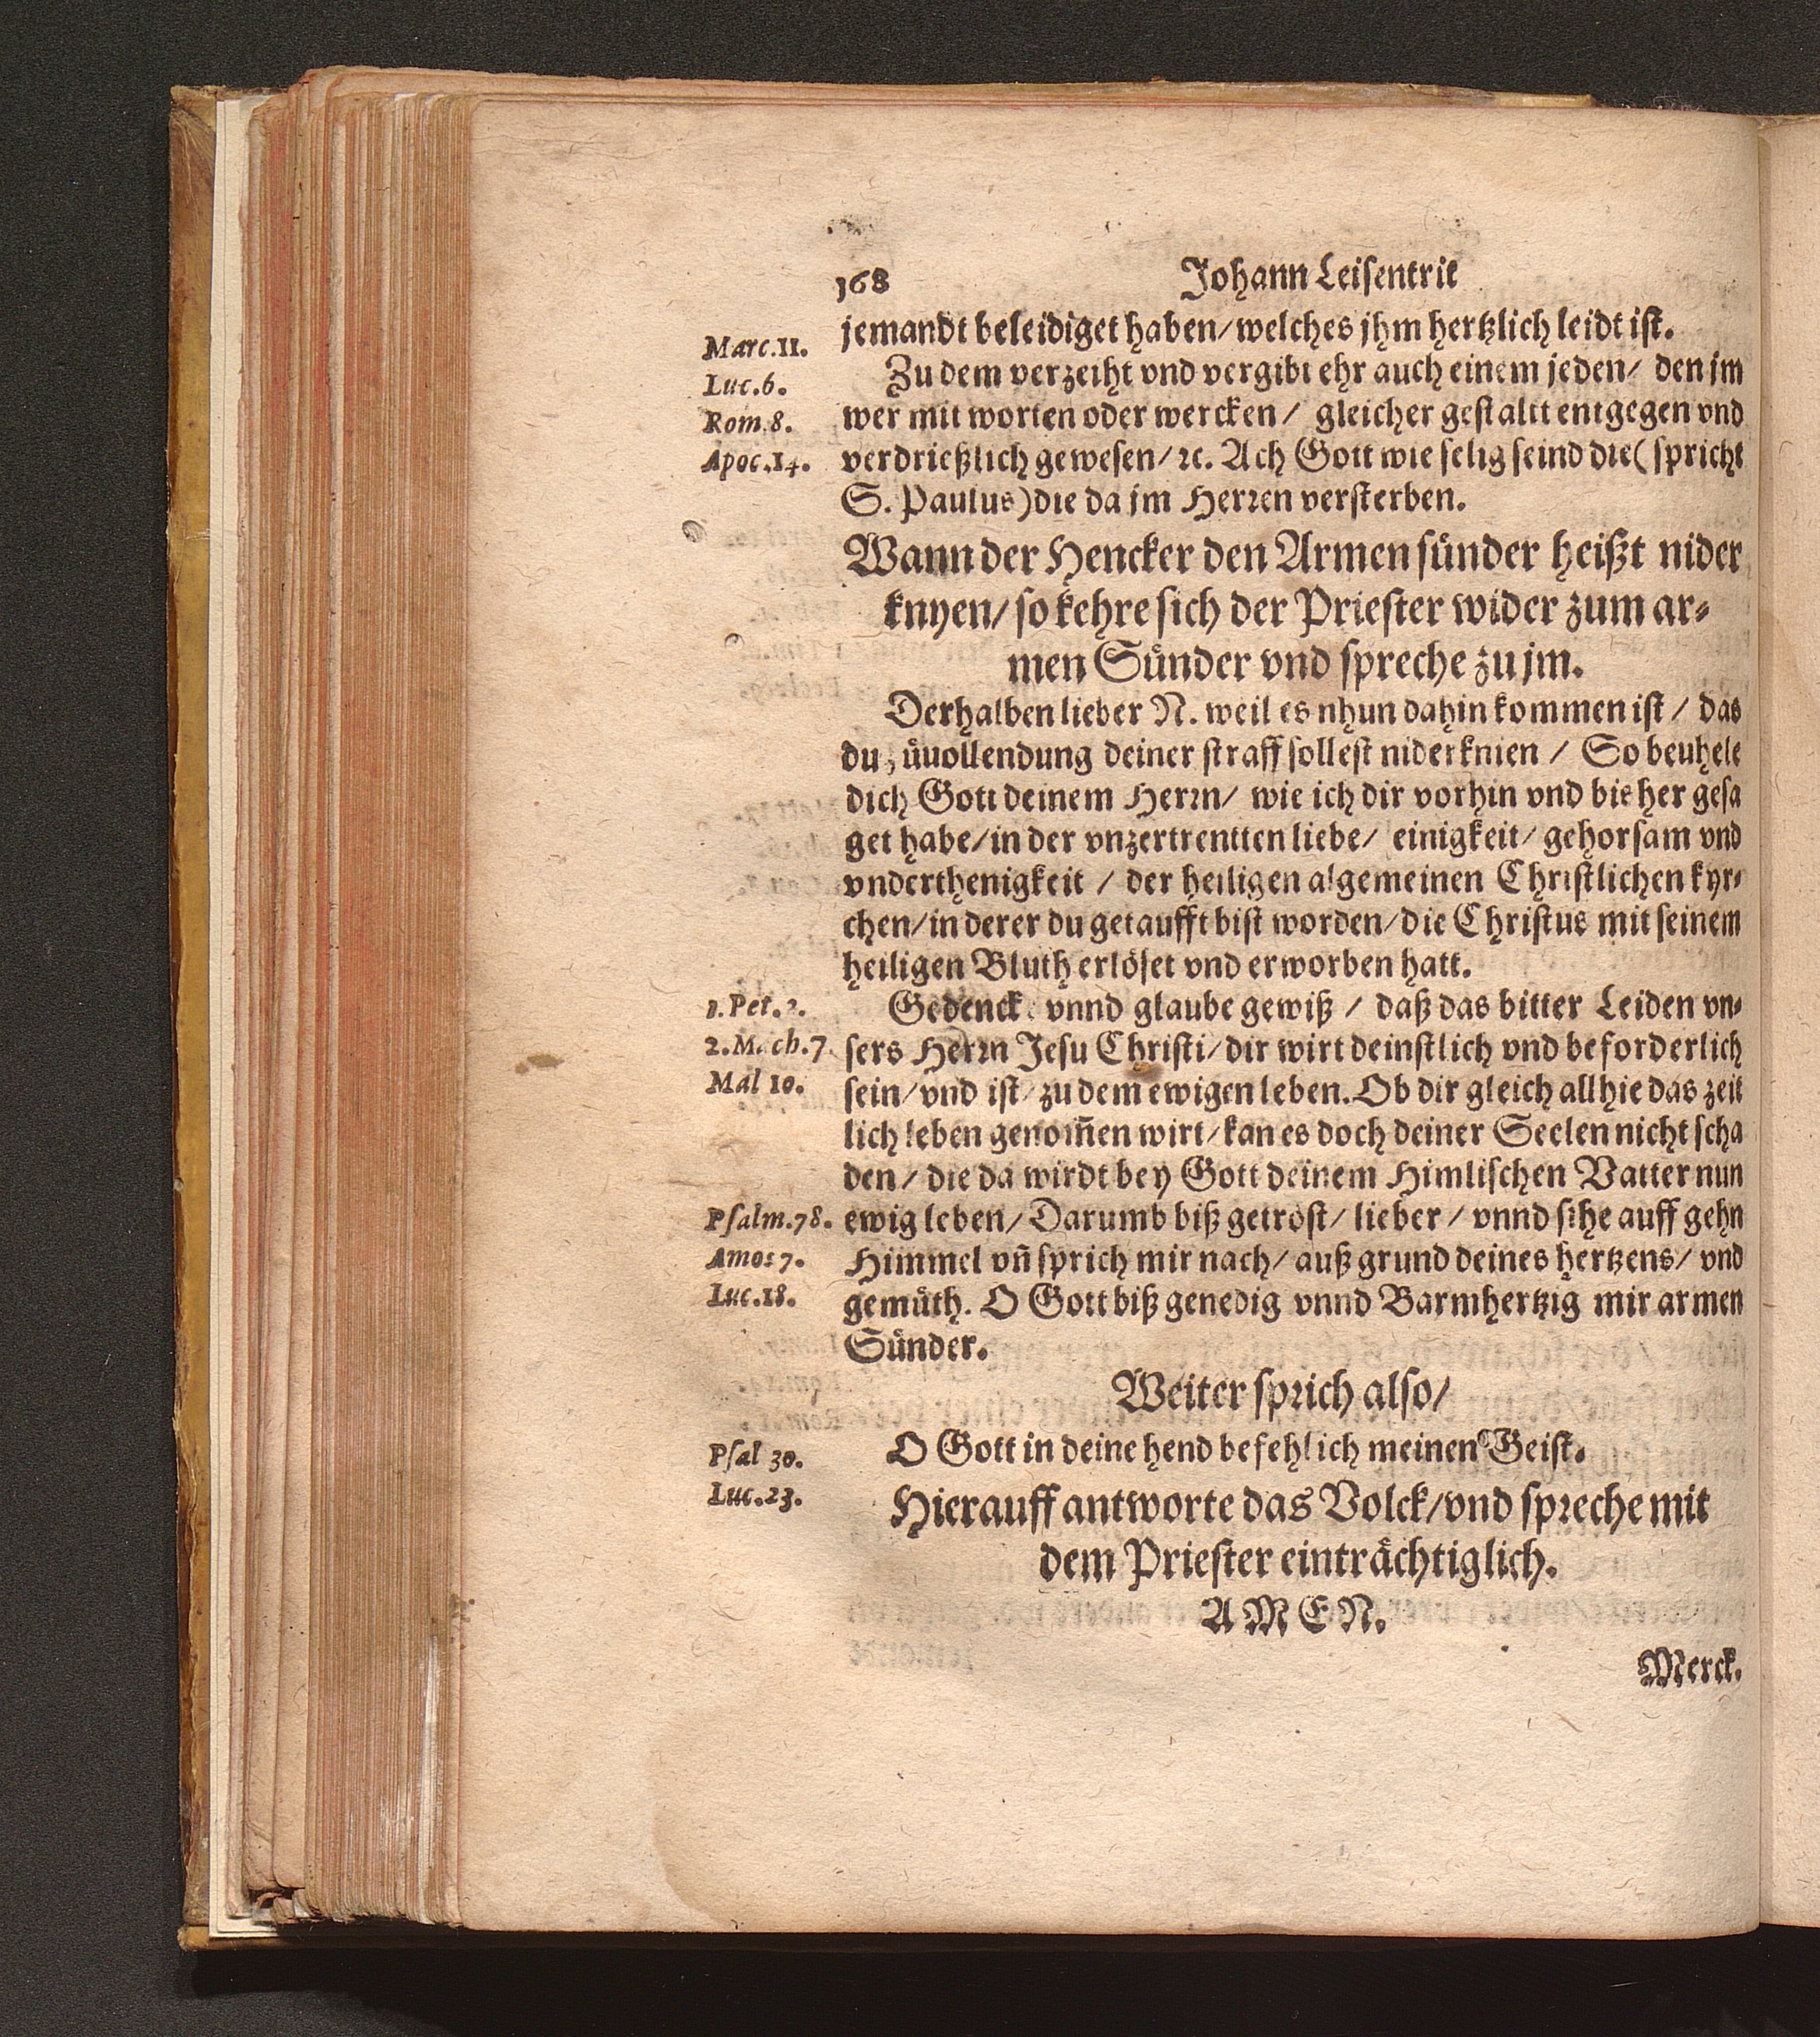 168 Johann Leisentrit
jemandt beleidiget haben/welches jhm hertzlich leidt ist.
Marc.11.
Zu dem verzeiht vnd vergibt ehr auch einem jeden/ den jm
Luc.6.
wer mit worten oder wercken/ gleicher gestaltt entgegen vnd
Rom.8.
verdrießlich gewesen/ ꝛc. Ach Gott wie selig seind die( spricht
Apoc.14.
S. Paulus)die da jm Herren versterben.
Wann der Hencker den Armen sünder heißt nider
knyen/ so kehre sich der Priester wider zum ar⸗
men Sünder vnd spreche zu jm.
Derhalben lieber N. weil es nhun dahin kommen ist/ das
du züuollendung deiner straff sollest niderknien/ So beuhele
dich Gott deinem Herrn/ wie ich dir vorhin vnd bis her gesa
get habe/in der vnzertrentten liebe/ einigkeit/ gehorsam vnd
vnderthenigkeit/ der heiligen algemeinen Christlichen kyr⸗
chen/in derer du getaufft bist worden/die Christus mit seinem
heiligen Bluth erlöset vnd erworben hatt.
1.Pet.2.
Gedenck vnnd glaube gewiß/ daß das bitter Leiden vn⸗
2.Mach.7
sers Herrn Jesu Christi/dir wirt deinstlich vnd beforderlich
Mal 10.
sein/vnd ist/zu dem ewigen leben. Ob dir gleich allhie das zeit
lich leben genom̃en wirt/kan es doch deiner Seelen nicht scha
den/ die da wirdt bey Gott deinem Himlischen Vatter nun
Psalm.78.
ewig leben/ Darumb biß getrost/ lieber/ vnnd sihe auff gehn
Amos 7.
Himmel vñ sprich mir nach/ auß grund deines hertzens/ vnd
Luc.18.
gemüth. O Gott biß genedig vnnd Barmhertzig mir armen
Sünder.
Weiter sprich also/
Psal 30.
O Gott in deine hend befehl ich meinen Geist.
Luc.23.
Hierauff antworte das Volck/vnd spreche mit
dem Priester einträchtiglich.
AMEN.
Merck.